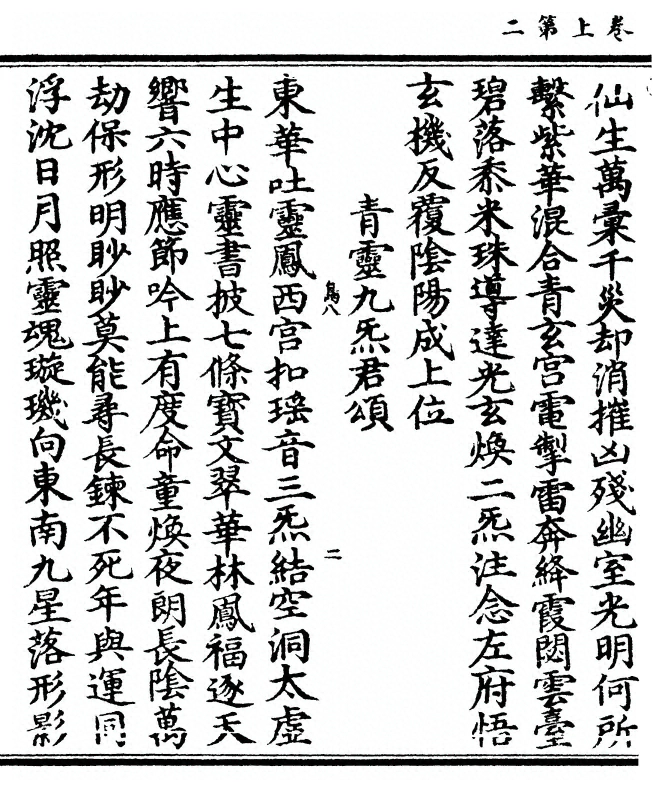 卷上第二
仙生萬彙千災却消摧凶殘幽室光明何所
繫紫華混合青玄宮電掣雷奔絳霞閟雲臺
碧落黍米珠導達光玄煥二炁注念左府悟
玄機反覆陰陽成上位
青靈九炁君頌
鳥八
二
東華吐靈鳳西宮扣瑶音三炁結空洞太虛
生中心靈書披七條寶文翠華林鳳福逐天
響六時應節吟上有度命童煥夜朗長陰萬
劫保形明眇眇莫能尋長鍊不死年與運同
浮沈日月照靈魂璇璣向東南九星落形影